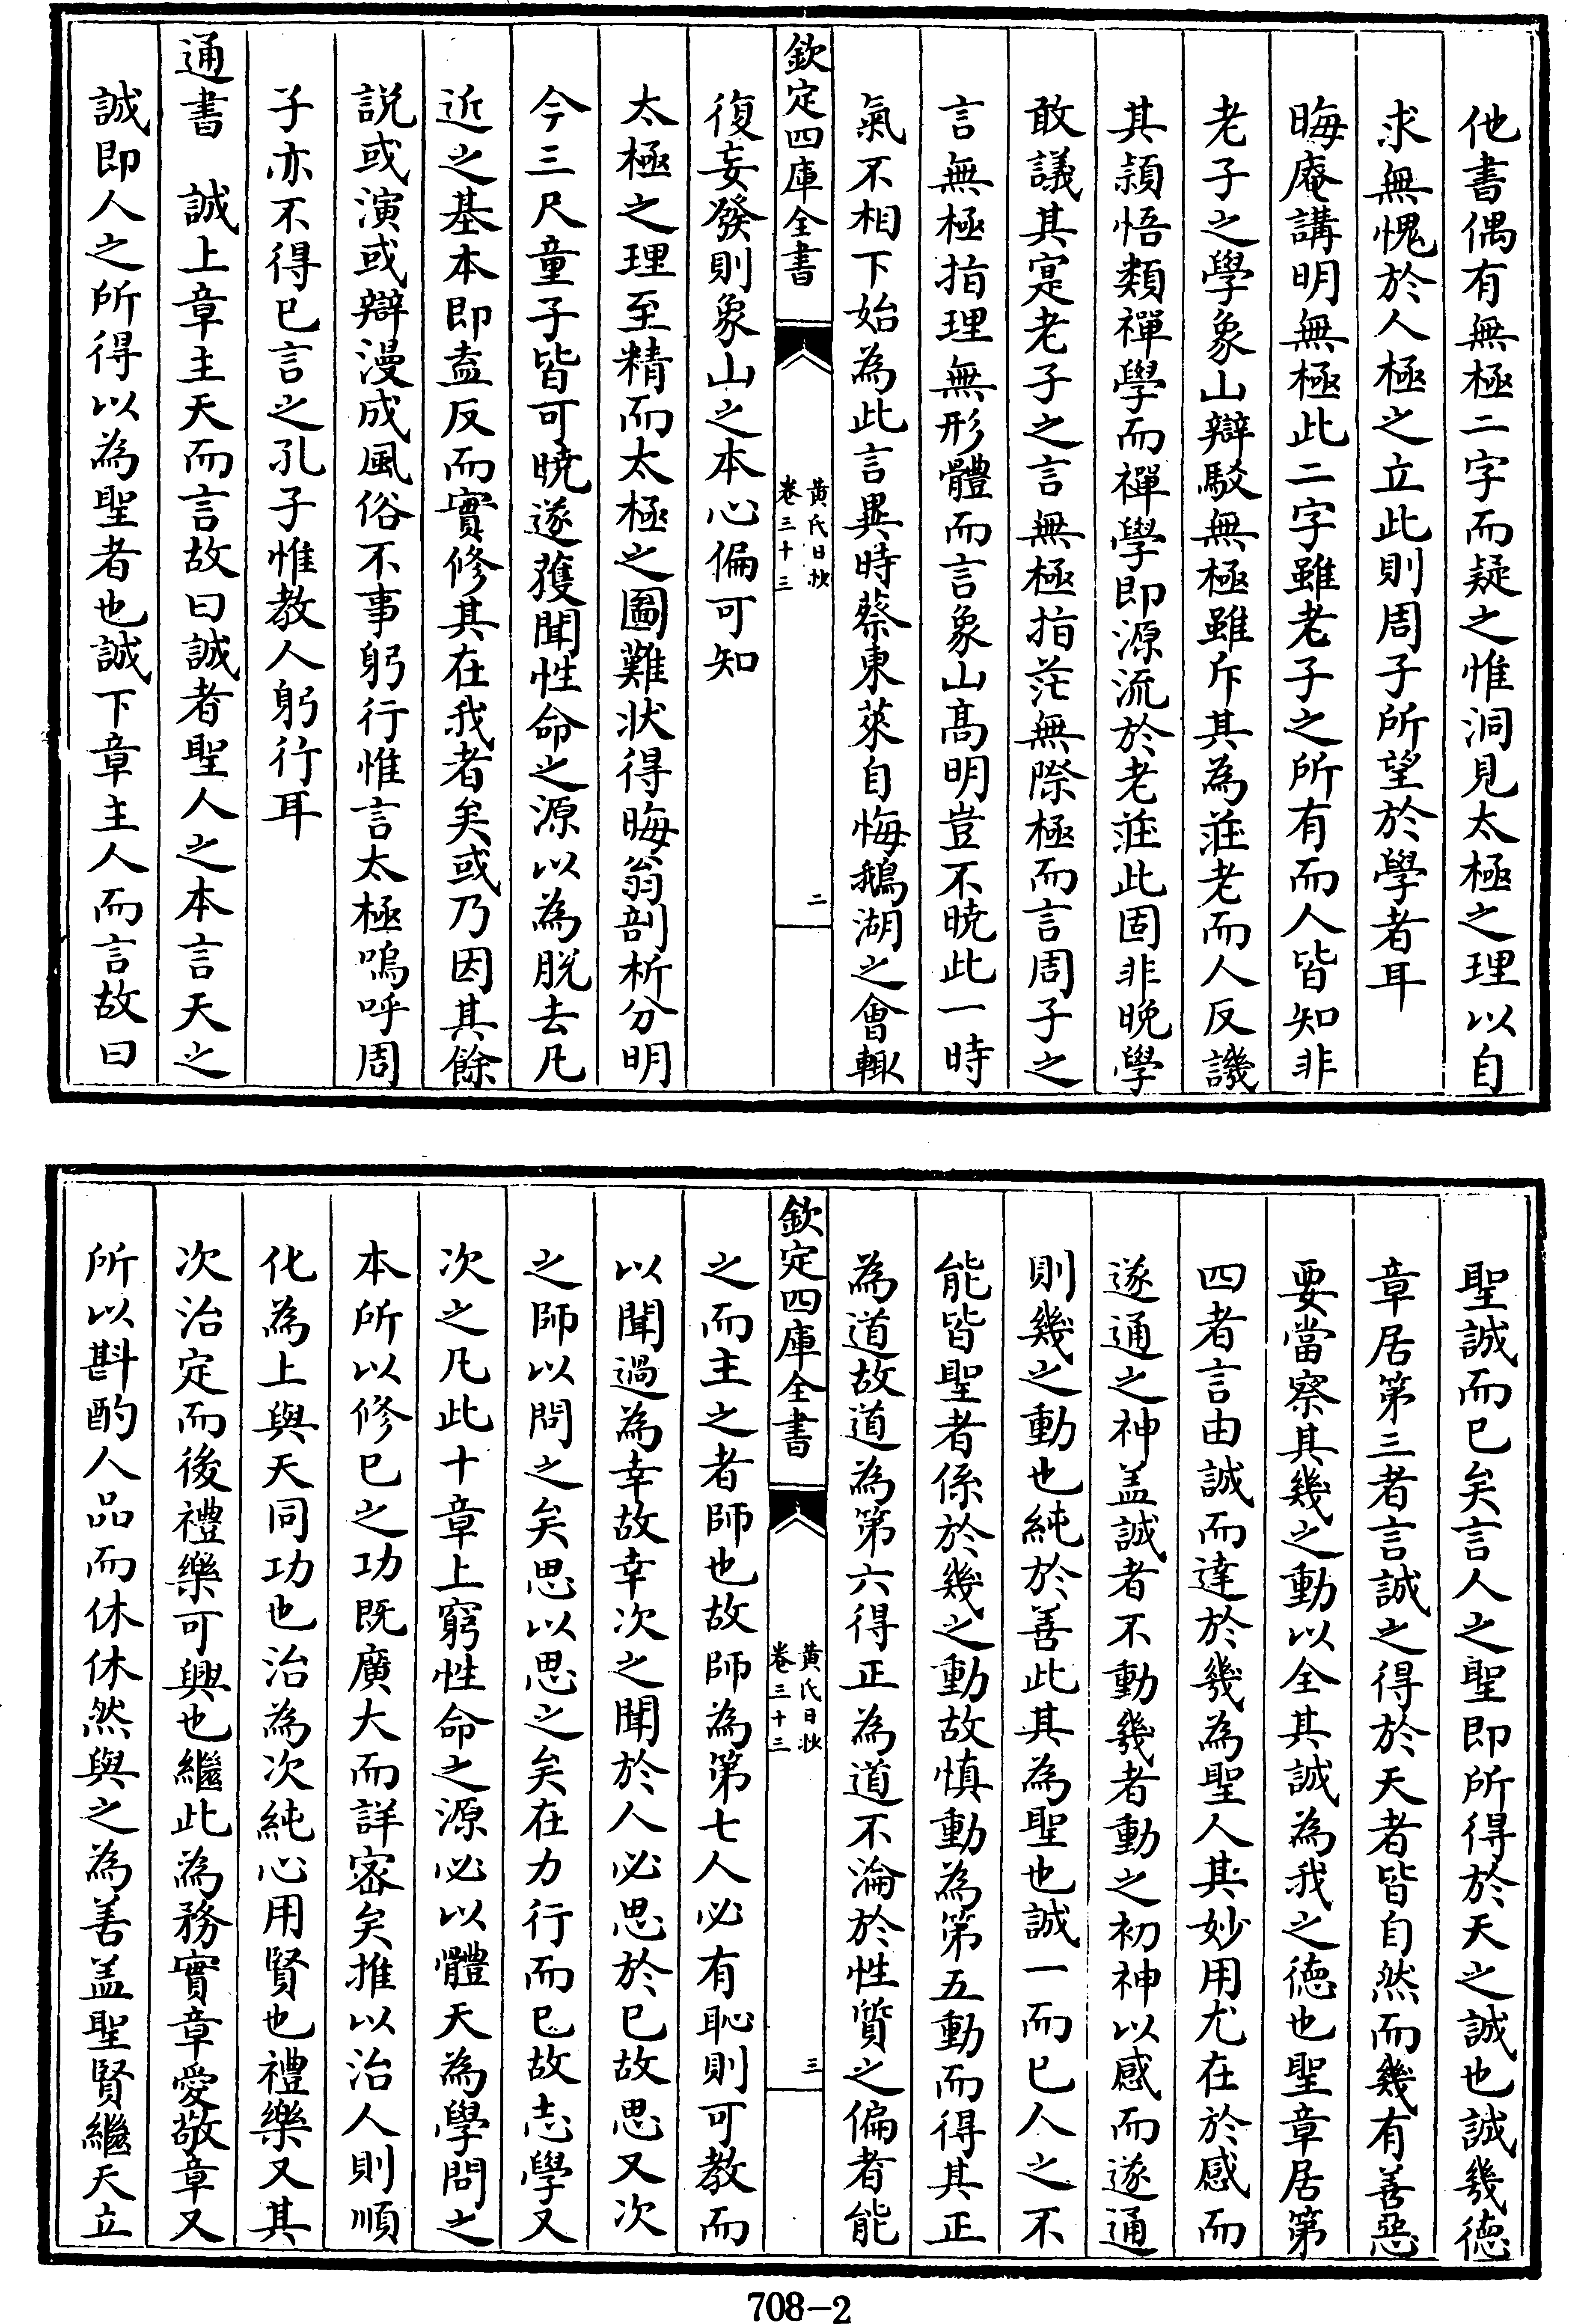 他書偶有無極二字而疑之惟洞見太極之理以自
求無愧於人極之立此則周子所望於學者耳
晦庵講明無極此二字雖老子之所有而人皆知非
老子之學象山辯駁無極雖斥其為莊老而人反譏
其頴悟類禪學而禪學即源流於老莊此固非晚學
敢議其寔老子之言無極指茫無際極而言周子之
言無極指理無形體而言象山髙明豈不曉此一時
氣不相下始為此言異時蔡東萊自悔鵝湖之會輙
欽定四庫全書
黄氏日抄
卷三十三
二
復妄發則象山之本心偏可知
太極之理至精而太極之圖難狀得晦翁剖析分明
今三尺童子皆可曉遂獲聞性命之源以為脱去凡
近之基本即盍反而實修其在我者矣或乃因其餘
説或演或辯漫成風俗不事躬行惟言太極嗚呼周
子亦不得已言之孔子惟教人躬行耳
通書 誠上章主天而言故曰誠者聖人之本言天之
誠即人之所得以為聖者也誠下章主人而言故曰
聖誠而已矣言人之聖即所得於天之誠也誠幾徳
章居第三者言誠之得於天者皆自然而幾有善惡
要當察其幾之動以全其誠為我之徳也聖章居第
四者言由誠而達於幾為聖人其妙用尤在於感而
遂通之神盖誠者不動幾者動之初神以感而遂通
則幾之動也純於善此其為聖也誠一而已人之不
能皆聖者係於幾之動故慎動為第五動而得其正
為道故道為第六得正為道不淪於性質之偏者能
欽定四庫全書
黄氏日抄
卷三十三
三
之而主之者師也故師為第七人必有恥則可教而
以聞過為幸故幸次之聞於人必思於已故思又次
之師以問之矣思以思之矣在力行而已故志學又
次之凡此十章上窮性命之源必以體天為學問之
本所以修已之功既廣大而詳宻矣推以治人則順
化為上與天同功也治為次純心用賢也禮樂又其
次治定而後禮樂可興也繼此為務實章愛敬章又
所以斟酌人品而休休然與之為善盖聖賢繼天立
708-2